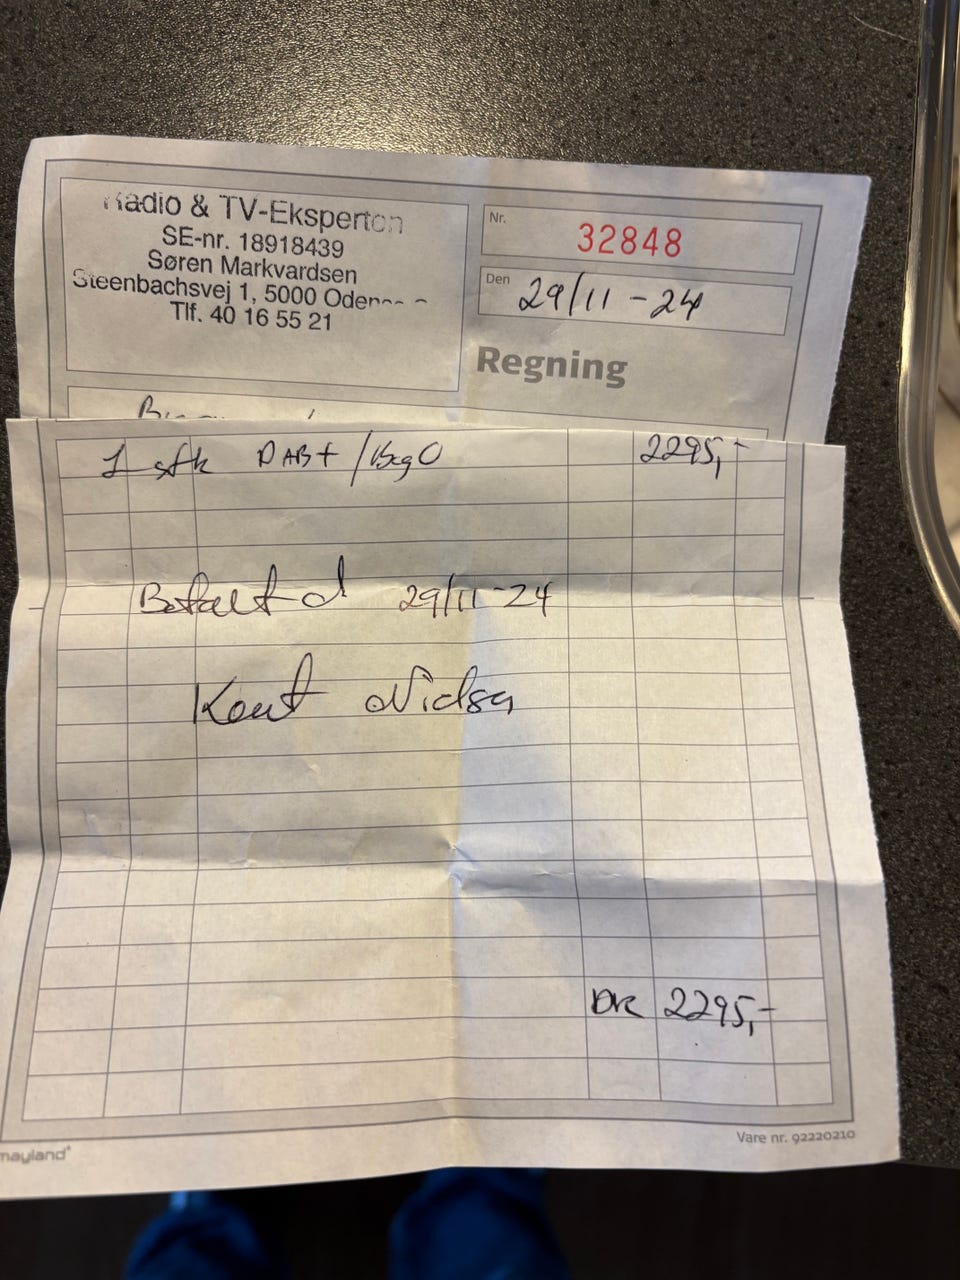 Radio & TV-Eksperten
SE-nr. 18918439
Søren Markvardsen
Steenbachsvej 1, 5000 Odense
Tlf. 40 16 55 21
Nr.
32848
Den
29/11-24
Regning
1 stk DAB+ / B&O 2295,-
Betalt d 29/11-24
Kent Nielsen
DK 2295,-
mayland
Vare nr. 92220210